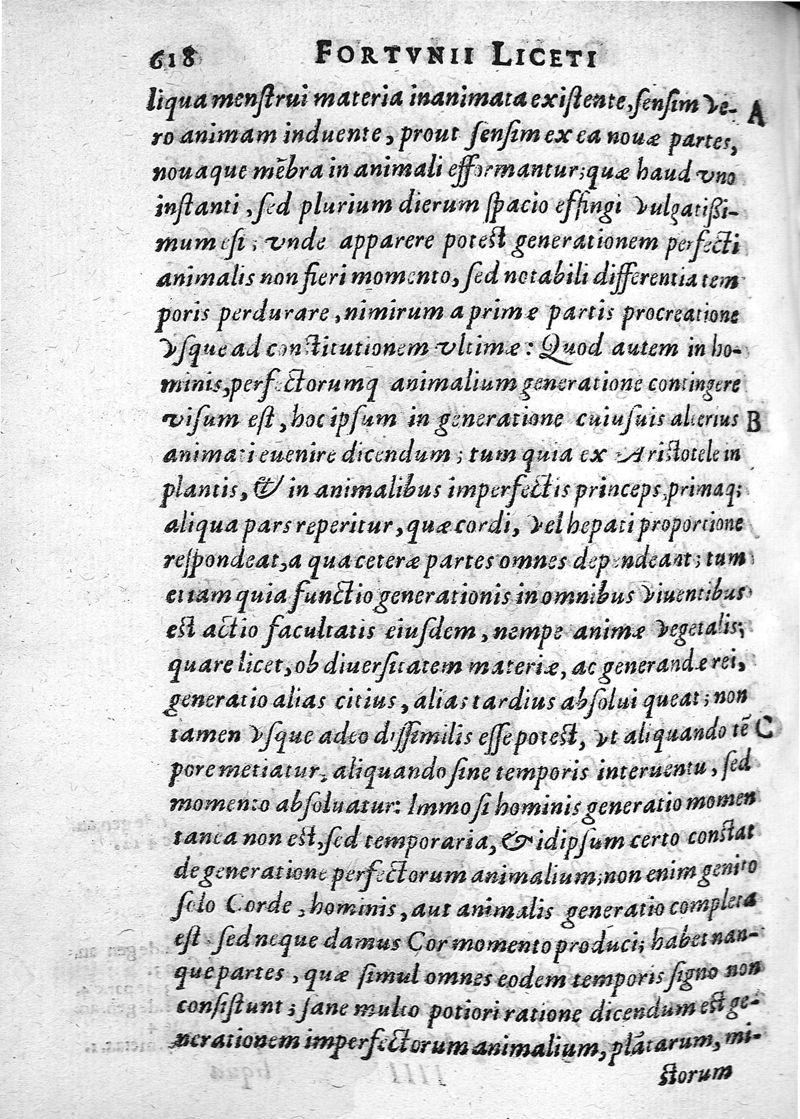 618 FORTVNII LICETI
liqua menſtrui materia inanimata exiſtente, ſenſim ve- A
ro animam induente, prout ſenſim ex ea nouæ partes,
nouaque mēbra in animali efformantur; quæ haud vno
inſtanti, ſed plurium dierum ſpacio effingi vulgatißi-
mum eſt; vnde apparere poteſt generationem perfecti
animalis non fieri momento, ſed notabili differentia tem
poris perdurare, nimirum a primæ partis procreatione
vſque ad conſtitutionem vltimæ: Quod autem in ho-
minis, perfectorumq animalium generatione contingere
viſum eſt, hoc ipſum in generatione cuiuſuis alterius B
animati euenire dicendum; tum quia ex Ariſtotele in
plantis, & in animalibus imperfectis princeps, primaq;
aliqua pars reperitur, quæ cordi, vel hepati proportione
reſpondeat, a qua ceteræ partes omnes dependeant; tum
etiam quia functio generationis in omnibus viuentibus
eſt actio facultatis eiuſdem, nempe animæ vegetalis;
quare licet, ob diuerſitatem materiæ, ac generandæ rei,
generatio alias citius, alias tardius abſolui queat; non
tamen vſque adeo diſſimilis eſſe poteſt, vt aliquando tē C
pore metiatur, aliquando ſine temporis interuentu, ſed
momento abſoluatur: Immo ſi hominis generatio momen
tanea non eſt, ſed temporaria, & idipſum certo conſtat
de generatione perfectorum animalium; non enim genito
ſolo Corde, hominis, aut animalis generatio completa
eſt. ſed neque damus Cor momento produci; habet nan-
que partes, quæ ſimul omnes eodem temporis ſigno non
conſiſtunt; ſane multo potiori ratione dicendum eſt ge-
nerationem imperfectorum animalium, plātarum, mi-
ſtorum